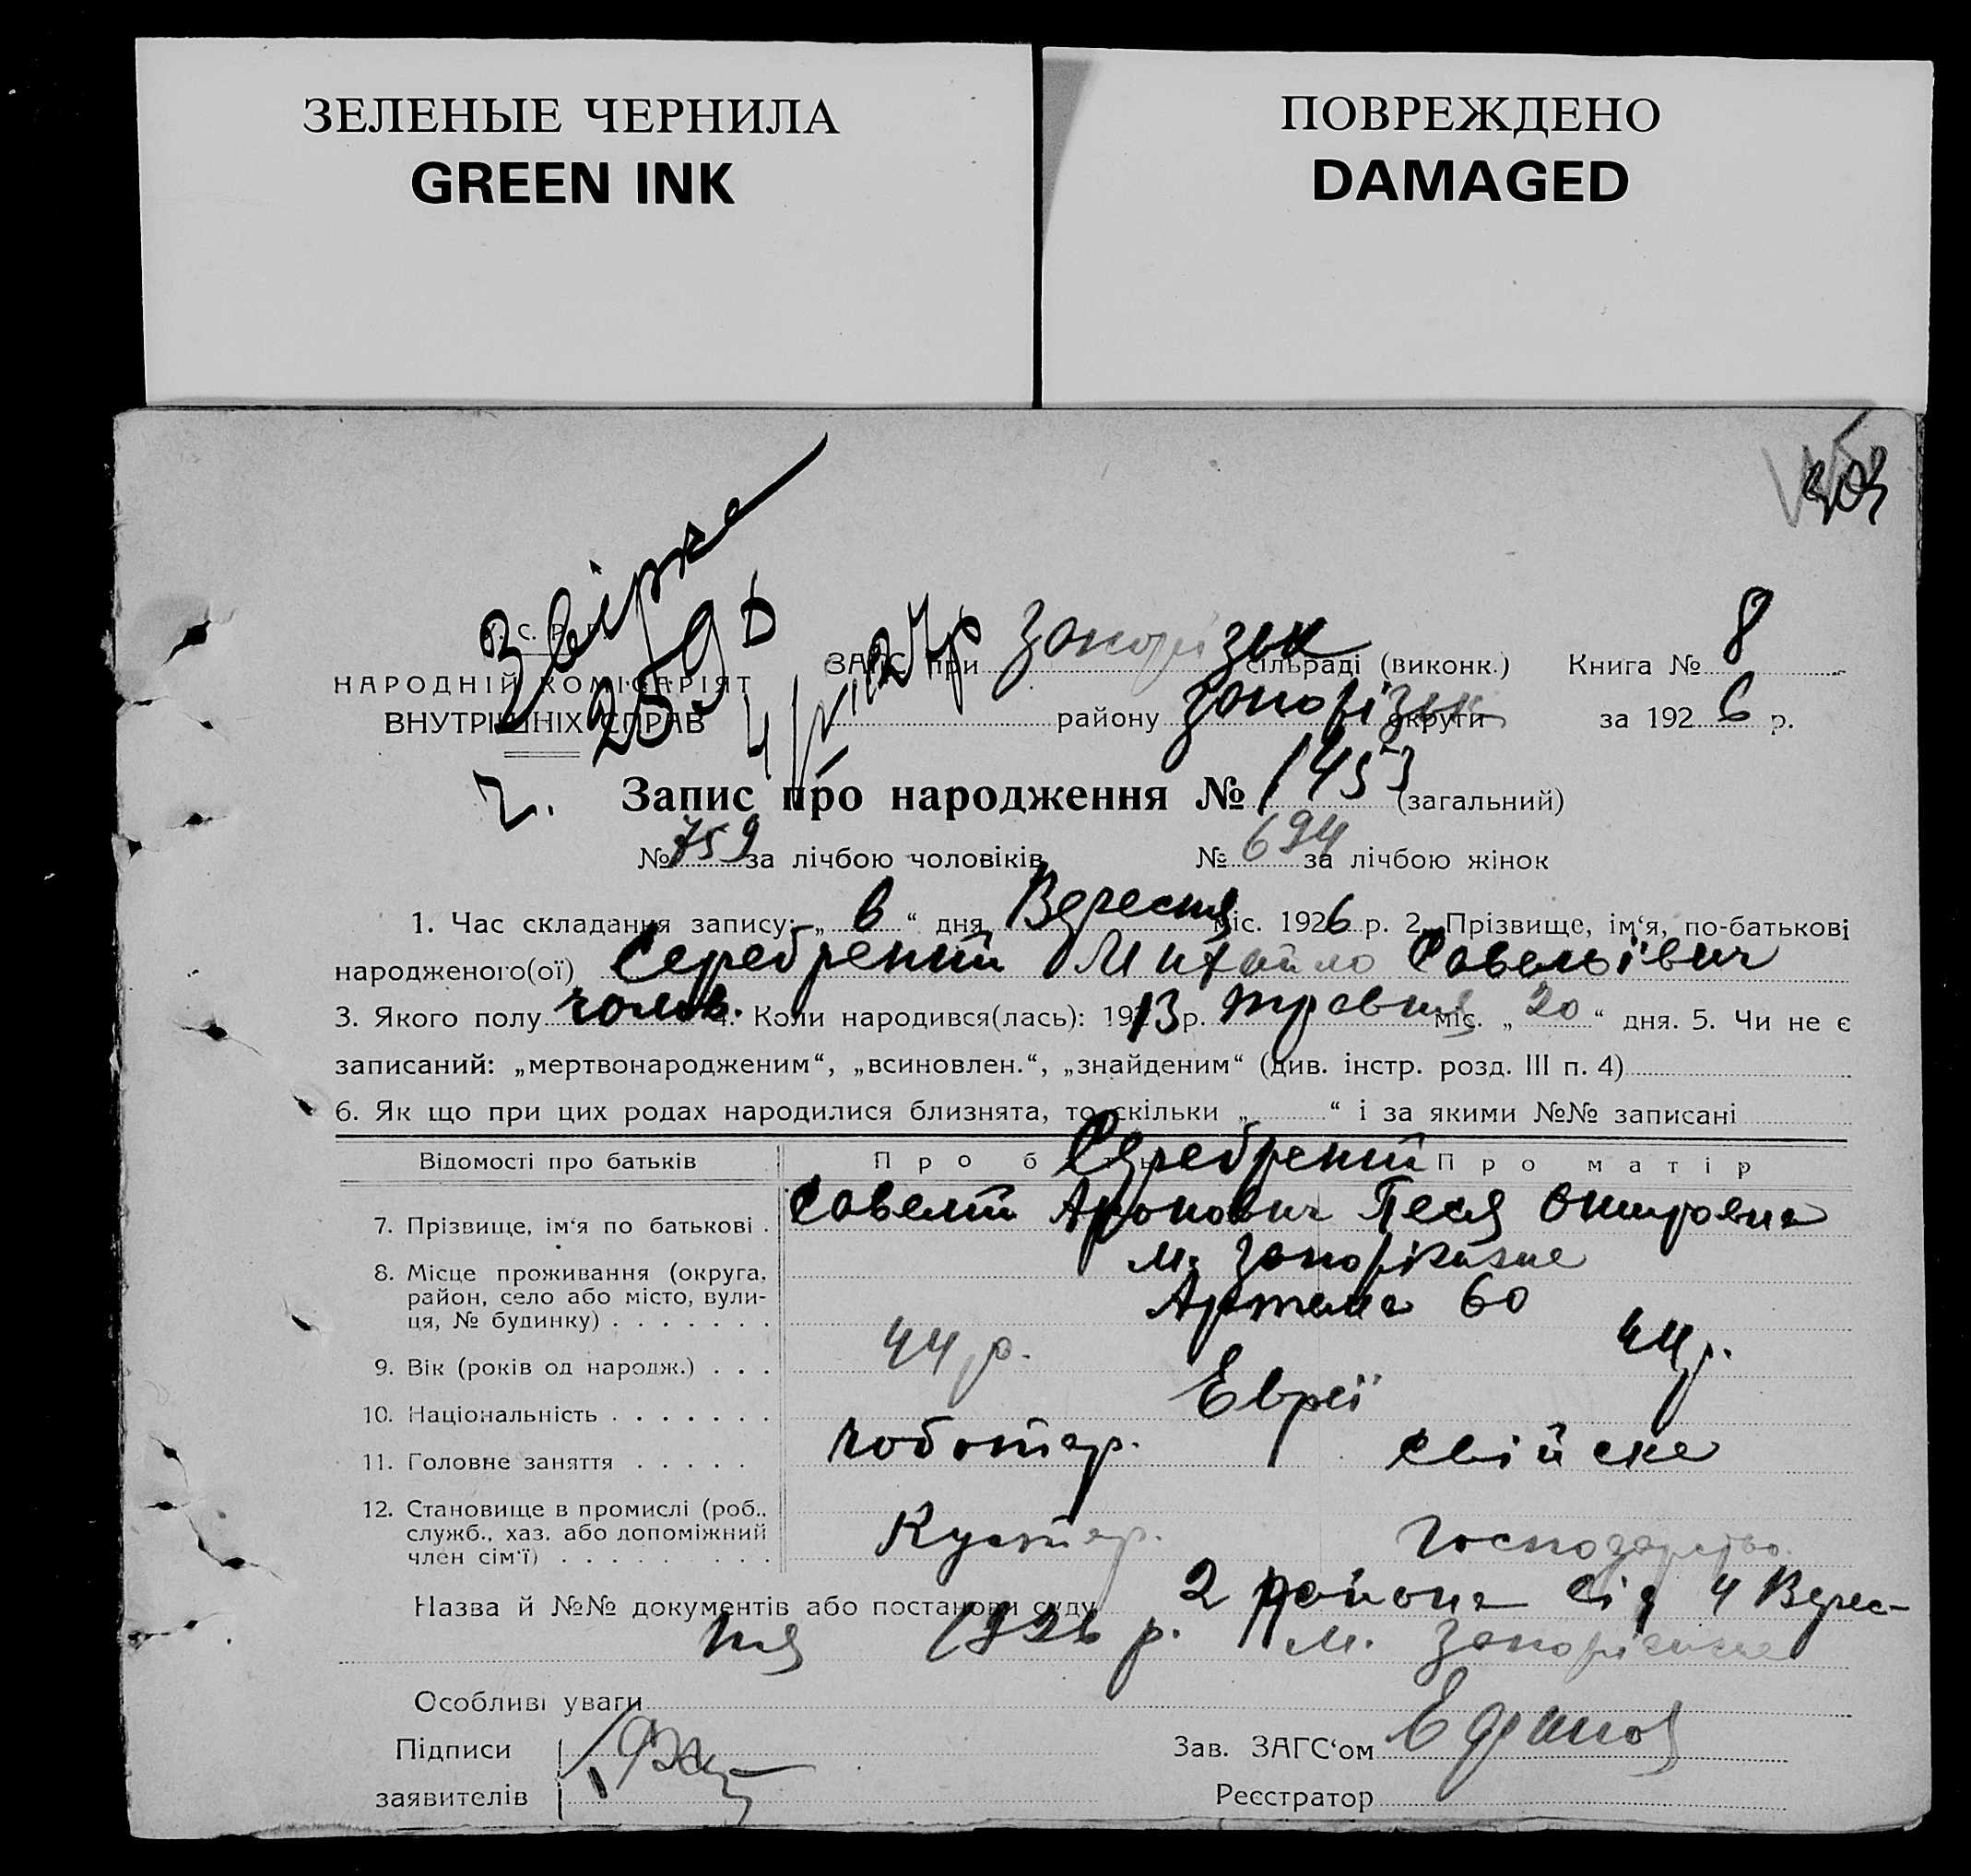 ЗЕЛЕНЫЕ ЧЕРНИЛА
GREEN INK
ПОВРЕЖДЕНО
DAMAGED
303
У. С. Р. Р.
НАРОДНІЙ КОМІСАРІЯТ
ВНУТРІШНІХ СПРАВ
ЗАГС при Запорізьк сільраді (виконк.) Книга № 8
району Запорізьк округи за 1926 р.
Запис про народження № 1453 (загальний)
№ 759 за лічбою чоловіків № 694 за лічбою жінок
1. Час складання запису: „ 6 “ дня Вересня міс. 1926 р. 2. Прізвище, ім'я, по-батькові
народженого(ої) Серебрений Михайло Савельівич
3. Якого полу чолов. 4. Коли народився(лась): 1913 р. травня міс. „ 20 “ дня. 5. Чи не є
записаний: „мертвонародженим“, „всиновлен.“, „знайденим“ (див. інстр. розд. III п. 4)
6. Як що при цих родах народилися близнята, то скільки „ “ і за якими №№ записані
Відомості про батьків Про батька Про матір
Серебрений
7. Прізвище, ім'я по батькові . Савелій Аронович Песя
8. Місце проживання (округа, район, село або місто, вулиця, № будинку) . . . . . . . м. Запоріжжя
Артема 60
9. Вік (років од народж.) . . . 44 р. 44 р.
10. Національність . . . . . . . Евреї
11. Головне заняття . . . . . чоботар. свійске
12. Становище в промислі (роб., служб., хаз. або допоміжний член сім'ї) . . . . . . . . . Кустар. господарство.
Назва й №№ документів або постанови суду 2 района від 4 Верес-
ня 1926 р. м. Запоріжжя
Особливі уваги
Підписи
заявителів
Зав. ЗАГС'ом
Реєстратор